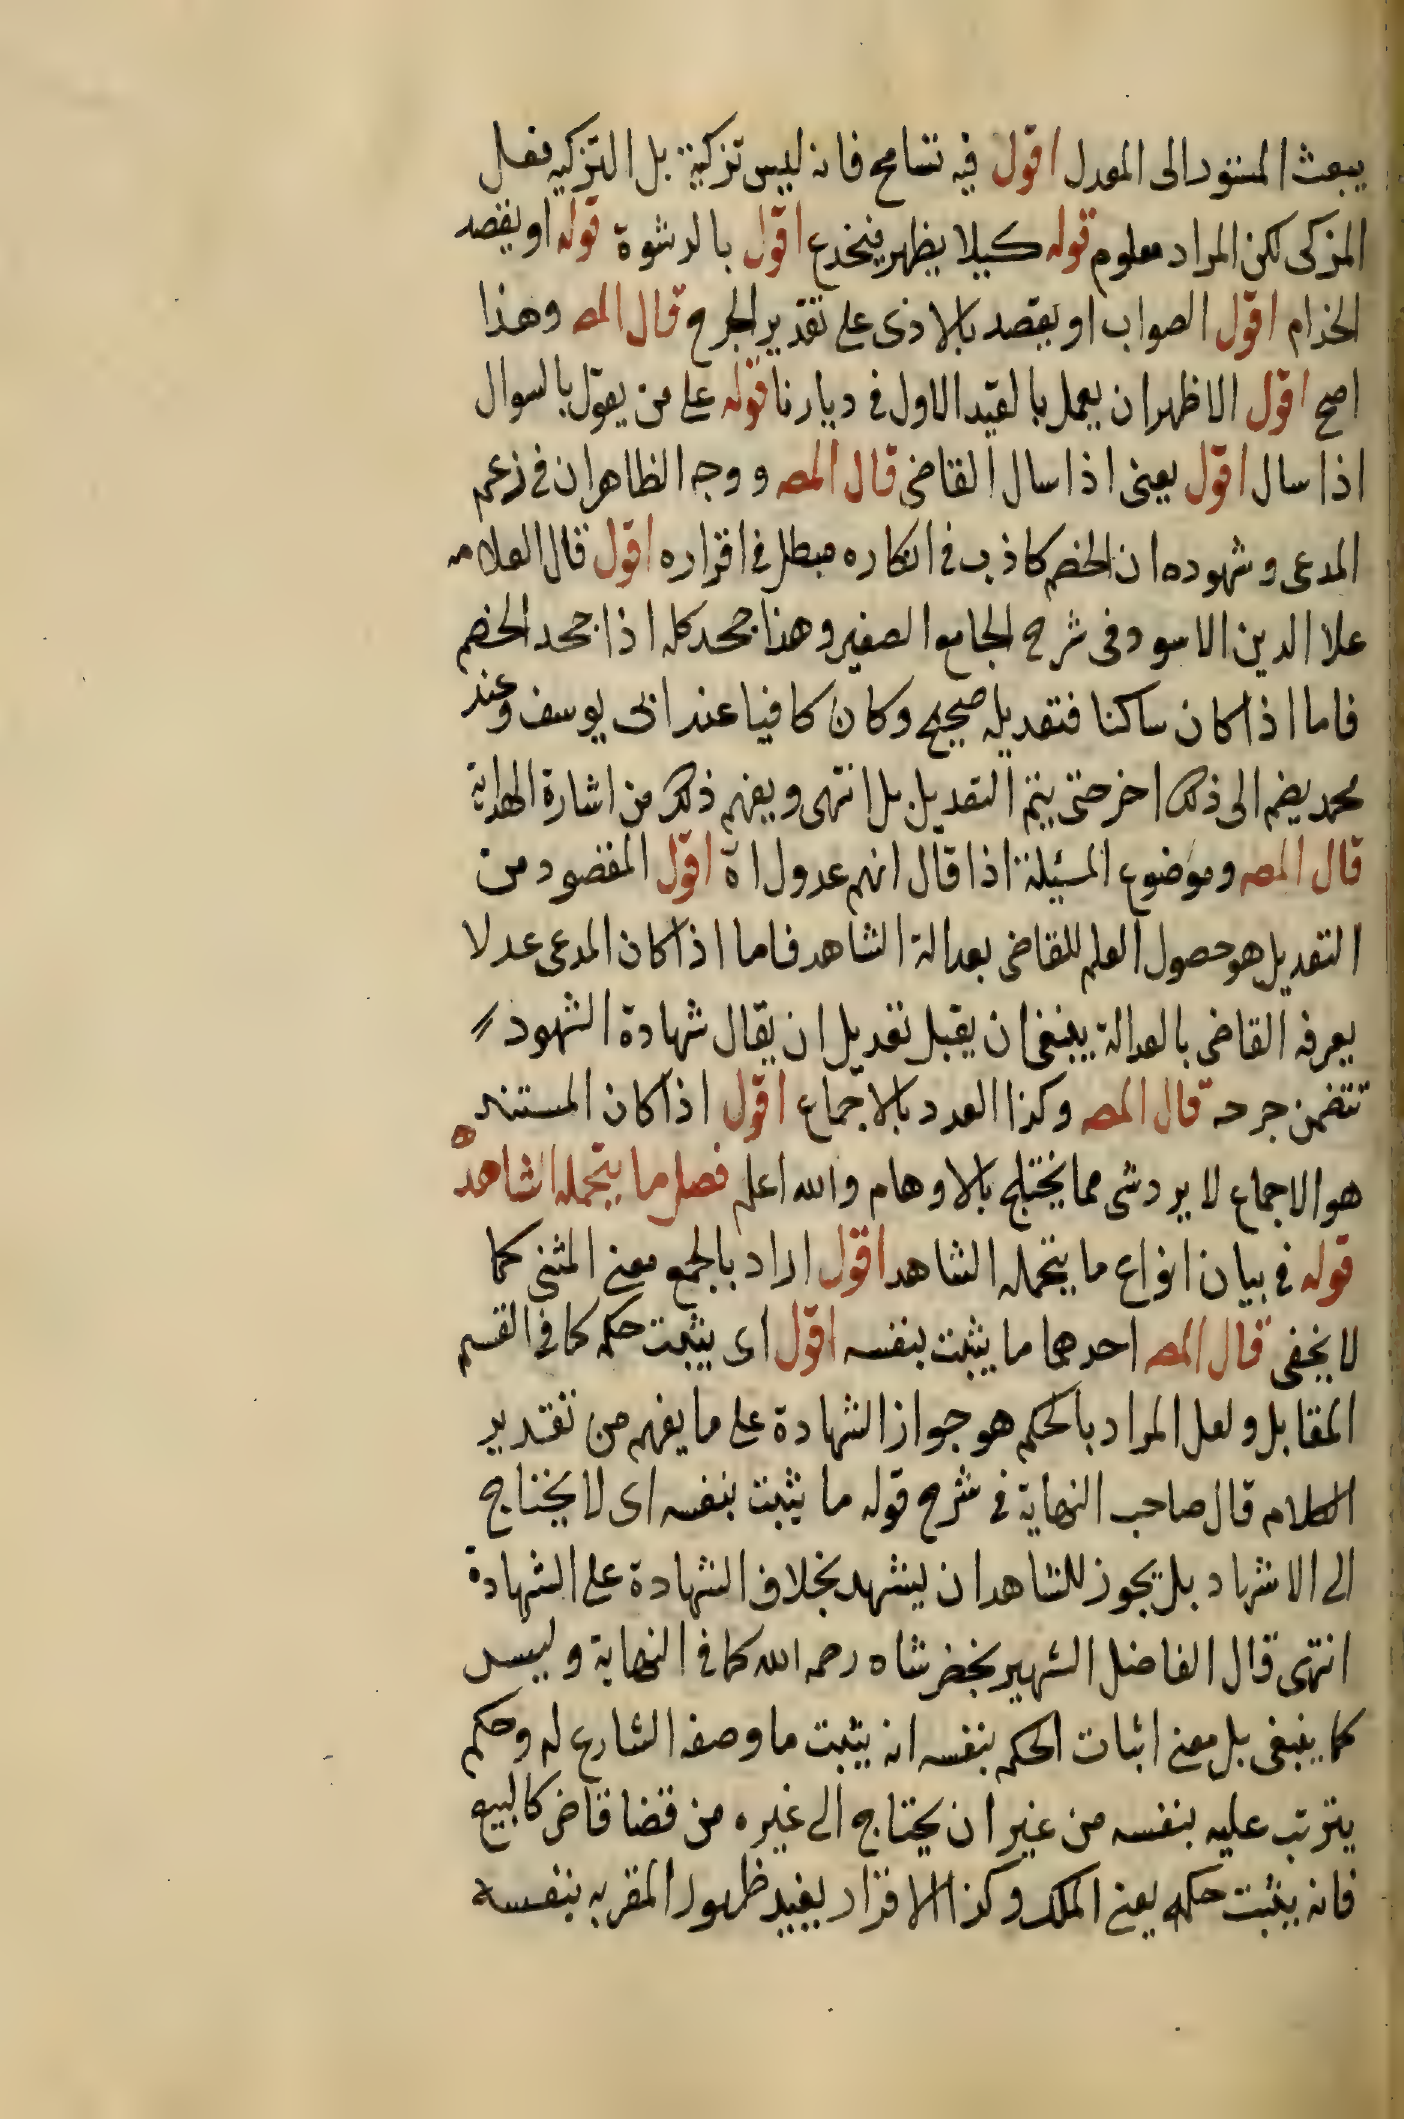 يبعث المستورة الى المعدل اقول فيه تسامح فانه ليس تزكية بل التزكيه فعل
المزكى لكن المراد معلوم قوله كيلا يظهر فيخدع اقول بالرشوة قوله او يقصد
الخدام اقول الصواب او يقصد بالاذى على تقدير الجرح قال المص وهذا
اصح اقول الاظهر ان يعمل بالقيد الاول فى ديارنا قوله على من يقول بالسوال
اذا سال اقول يعنى اذا سال القاضى قال المص ووجه الظاهر ان فى زعم
المدعى وشهوده ان الخصم كاذب فى انكاره مبطل فى اقراره اقول قال العلامه
علا الدين الاسود فى شرح الجامع الصغير وهذا جحد كله اذا جحد الخصم
فاما اذا كان ساكتا فتعديله صحيح وكان كافيا عند ابى يوسف وعند
محمد يضم الى ذلك اخر حتى يتم التعديل بل انتهى ويفهم ذلك من اشارة الهداية
قال المص وموضوع المسئلة اذا قال انهم عدول اه اقول المقصود من
التعديل هو حصول العلم للقاضى بعدالة الشاهد فاما اذا كان المدعى عدلا
يعرفه القاضى بالعدالة ينبغى ان يقبل تعديل ان يقال شهادة الشهود
تتضمن جرحه قال المص وكذا العدد بالاجماع اقول اذا كان المستند
هو الاجماع لا يرد شى مما يختلج بالاوهام والله اعلم فصل ما يتحمله الشاهد
قوله فى بيان انواع ما يتحمله الشاهد اقول اراد بالجمع معنى المثنى كما
لا يخفى قال المص احدهما ما يثبت بنفسه اقول اى يثبت حكمه كما فى القسم
المقابل ولعل المراد بالحكم هو جواز الشهادة على ما يفهم من تقدير
الكلام قال صاحب النهاية فى شرح قوله ما يثبت بنفسه اى لا يحتاج
الى الاشهاد بل يجوز للشاهد ان يشهد بخلاف الشهادة على الشهادة
انتهى قال الفاضل الشهير بخضر شاه رحمه الله كما فى النهاية وليس
كما ينبغى بل معنى اثبات الحكم بنفسه انه يثبت ما وصفه الشارع له وحكم
يترتب عليه بنفسه من غير ان يحتاج الى غيره من قضا قاض كالبيع
فانه يثبت حكمه يعنى الملك وكذا الاقرار يفيد ظهور المقر به بنفسه